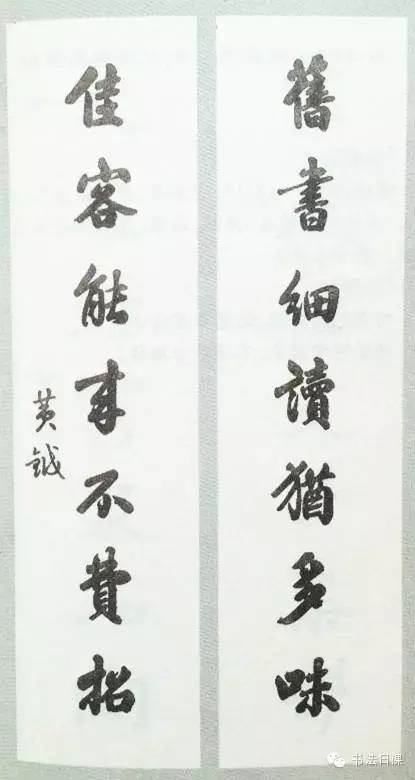 舊書細讀猶多味
佳客能來不費招
黃鉞
书法日课